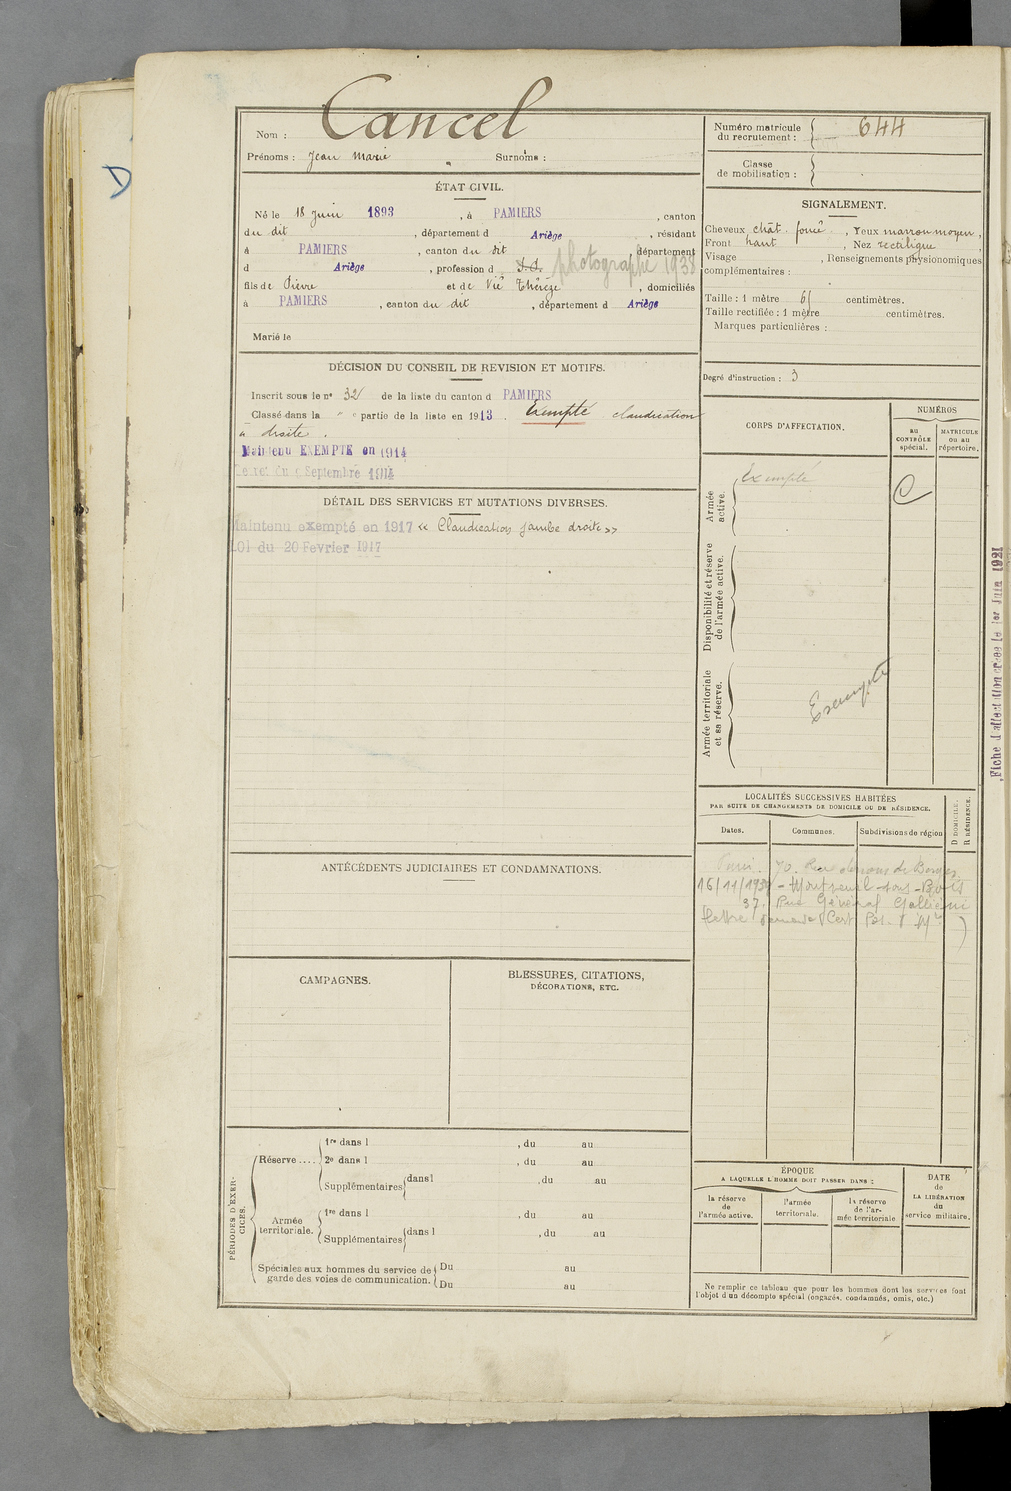 D
Nom : Cancel
Prénoms : Jean Marie " Surnoms :
Numéro matricule
du recrutement : 644
Classe
de mobilisation :
ÉTAT CIVIL.
Né le 18 Juin 1893, à PAMIERS, canton
du dit, département d Ariège, résidant
à PAMIERS, canton du dit, département
d Ariège, profession d S.P. photographe 1938
fils de Pierre et de Vié Thérèze, domiciliés
à PAMIERS, canton du dit, département d Ariège
Marié le
SIGNALEMENT.
Cheveux chât. foncé, Yeux marron moyen,
Front haut, Nez rectiligne
Visage , Renseignements physionomiques
complémentaires :
Taille : 1 mètre 61 centimètres.
Taille rectifiée : 1 mètre centimètres.
Marques particulières :
Degré d'instruction : 3
DÉCISION DU CONSEIL DE REVISION ET MOTIFS.
Inscrit sous le n° 32 de la liste du canton d PAMIERS
Classé dans la " e partie de la liste en 1913. Exempté claudication
à droite.
Maintenu EXEMPTE en 1914
Décret du Septembre 1914
DÉTAIL DES SERVICES ET MUTATIONS DIVERSES.
Maintenu exempté en 1917 « Claudication jambe droite »
LOI du 20 Fevrier 1917
CORPS D'AFFECTATION.
NUMÉROS
au
CONTRÔLE
spécial.
MATRICULE
ou au
répertoire.
Armée
active.
Exempté
C
Disponibilité et réserve
de l'armée active.
Armée territoriale
et sa réserve.
Exempté
Fiche d'affectation créée le 1er Juin 1921
LOCALITÉS SUCCESSIVES HABITÉES
PAR SUITE DE CHANGEMENTS DE DOMICILE OU DE RÉSIDENCE.
D DOMICILE.
R RÉSIDENCE.
Dates.
Communes.
Subdivisions de région
70. Rue
16/11/193 - Montreuil-sous-Bois
37. Rue Général Gallieni
(lettre demande Cert )
ANTÉCÉDENTS JUDICIAIRES ET CONDAMNATIONS.
CAMPAGNES.
BLESSURES, CITATIONS,
DÉCORATIONS, ETC.
PÉRIODES D'EXER-
CICES.
Réserve ....
1re dans l , du au
2e dans l , du au
Supplémentaires dans l , du au
Armée
territoriale.
1re dans l , du au
Supplémentaires dans l , du au
Spéciales aux hommes du service de
garde des voies de communication.
Du au
Du au
ÉPOQUE
A LAQUELLE L'HOMME DOIT PASSER DANS :
la réserve
de
l'armée active.
l'armée
territoriale.
la réserve
de l'ar-
mée territoriale
DATE
de
LA LIBÉRATION
du
service militaire.
Ne remplir ce tableau que pour les hommes dont les services font
l'objet d'un décompte spécial (engagés, condamnés, omis, etc.)